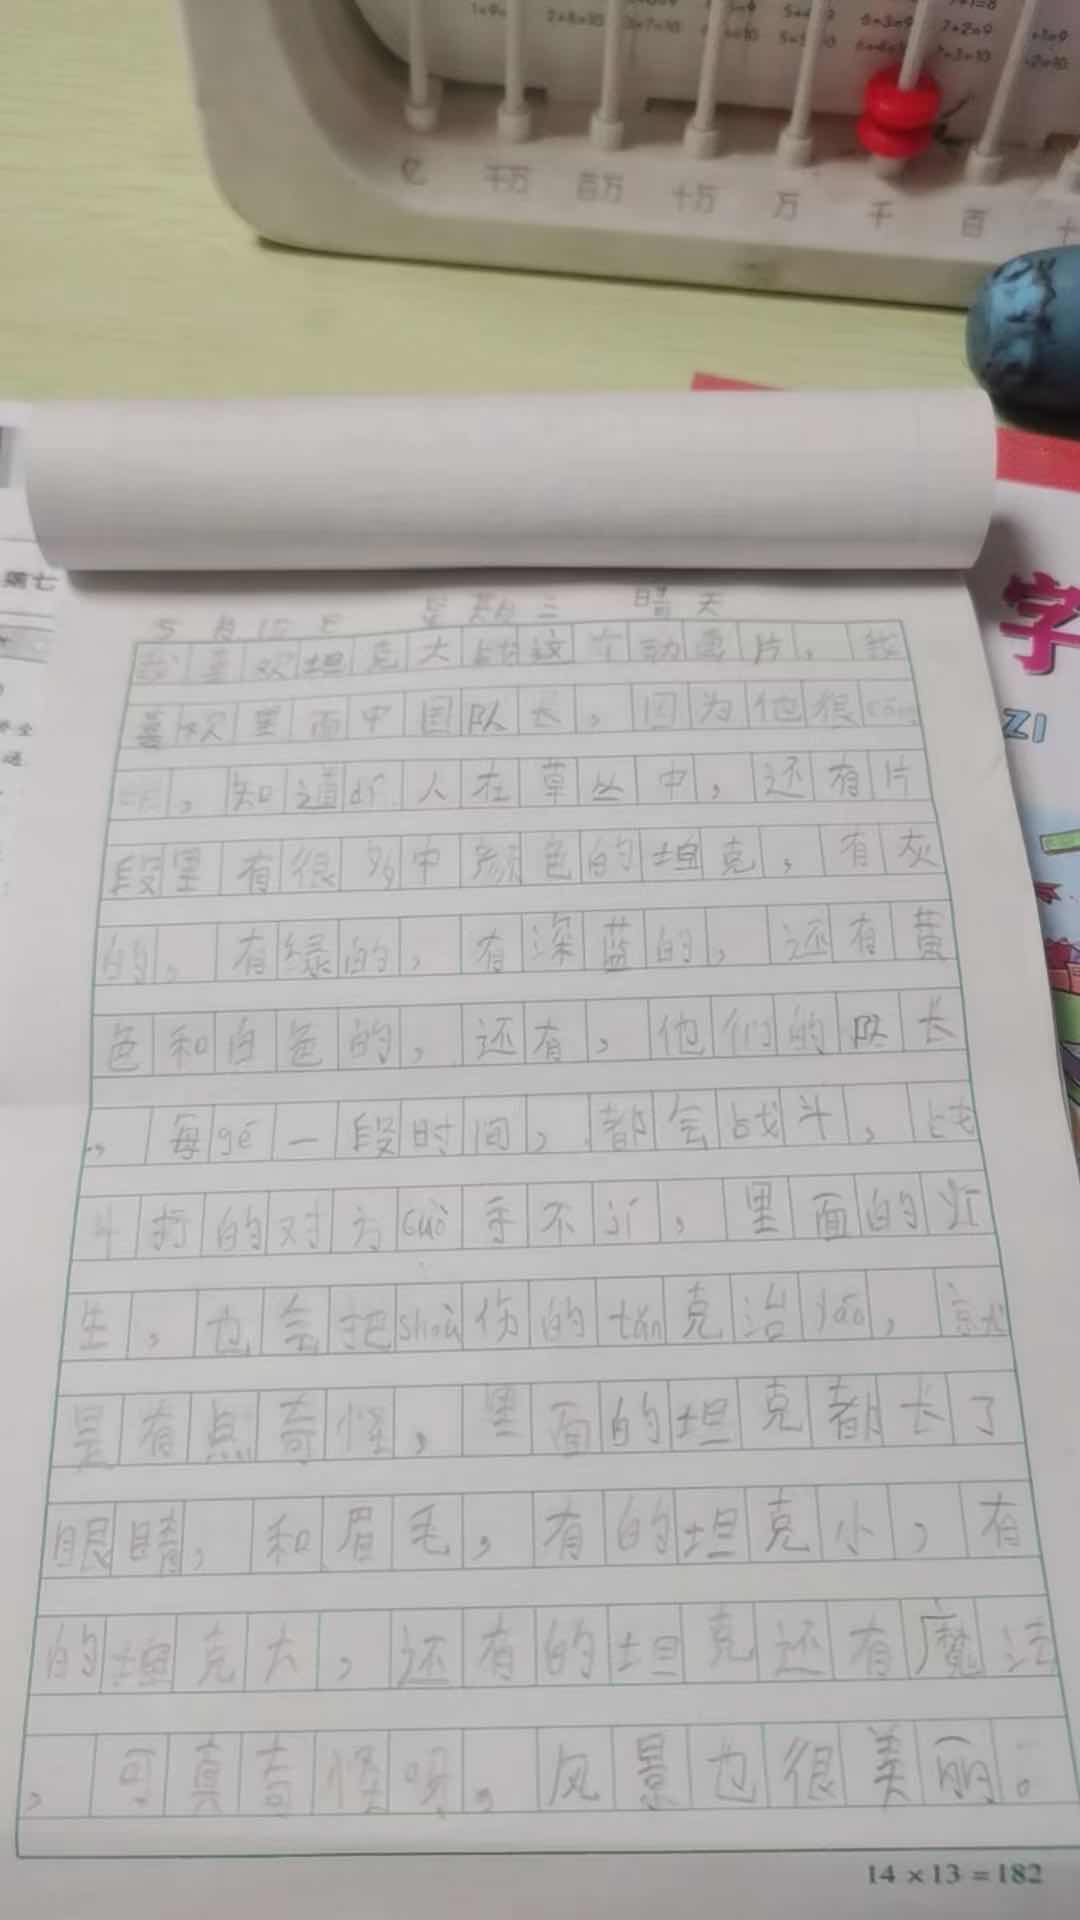 亿 千万 百万 十万 万 千 百 十
第七
字
ZI
5月15日 星期三 晴天
我喜欢坦克大战这个动画片，我
喜欢里面中国队长，因为他很cōng
明，知道dí人在草丛中，还有片
段里有很多中颜色的坦克，有灰
的，有绿的，有深蓝的，还有黄
色和白色的，还有，他们的队长
，每gé一段时间，都会战斗，战
斗打的对方cuò手不jí，里面的
生，也会把shòu伤的tǎn克治
是有点奇怪，里面的坦克都长了
眼睛，和眉毛，有的坦克小，有
的坦克大，还有的坦克还有魔法
，可真奇怪呀，风景也很美丽。
14×13=182